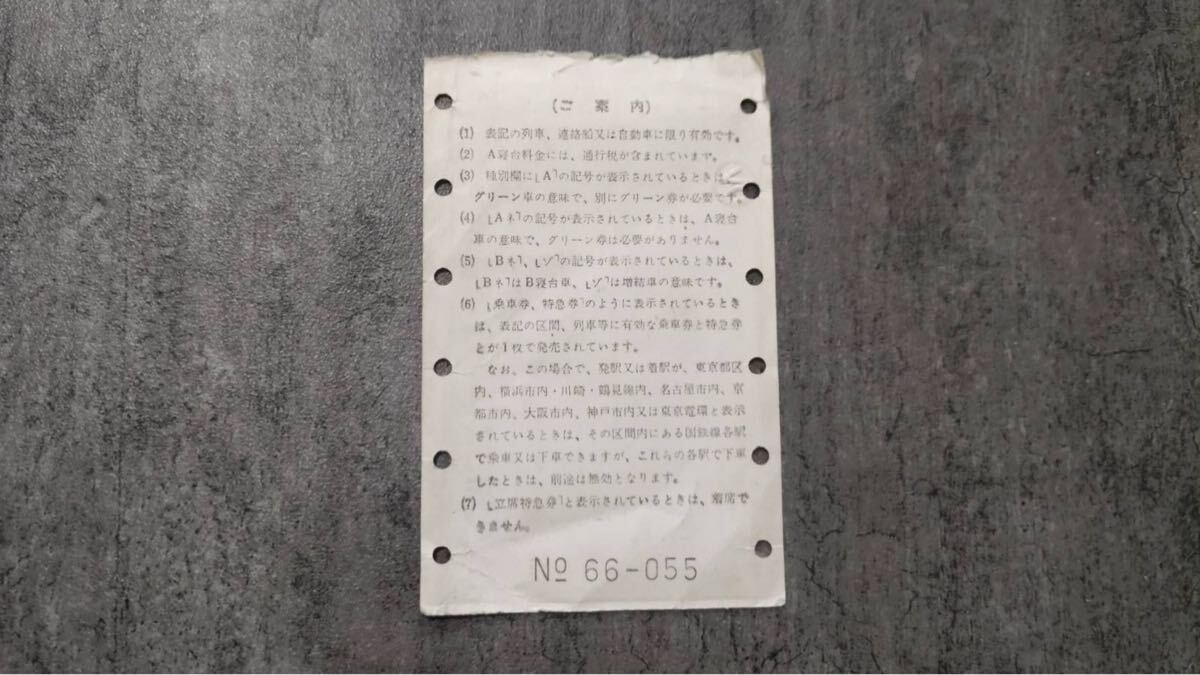 (ご案内)
(1) 表記の列車、連絡船又は自動車に限り有効です。
(2) A寝台料金には、通行税が含まれています。
(3) 種別欄に「A」の記号が表示されているときは、
グリーン車の意味で、別にグリーン券が必要です。
(4) 「Aネ」の記号が表示されているときは、A寝台
車の意味で、グリーン券は必要がありません。
(5) 「Bネ」、「ゾ」の記号が表示されているときは、
「Bネ」はB寝台車、「ゾ」は増結車の意味です。
(6) 「乗車券、特急券」のように表示されているとき
は、表記の区間、列車等に有効な乗車券と特急券
とが1枚で発売されています。
なお、この場合で、発駅又は着駅が、東京都区
内、横浜市内・川崎・鶴見線内、名古屋市内、京
都市内、大阪市内、神戸市内又は東京電環と表示
されているときは、その区間内にある国鉄線各駅
で乗車又は下車できますが、これらの各駅で下車
したときは、前途は無効となります。
(7) 「立席特急券」と表示されているときは、着席で
きません。
№ 66-055